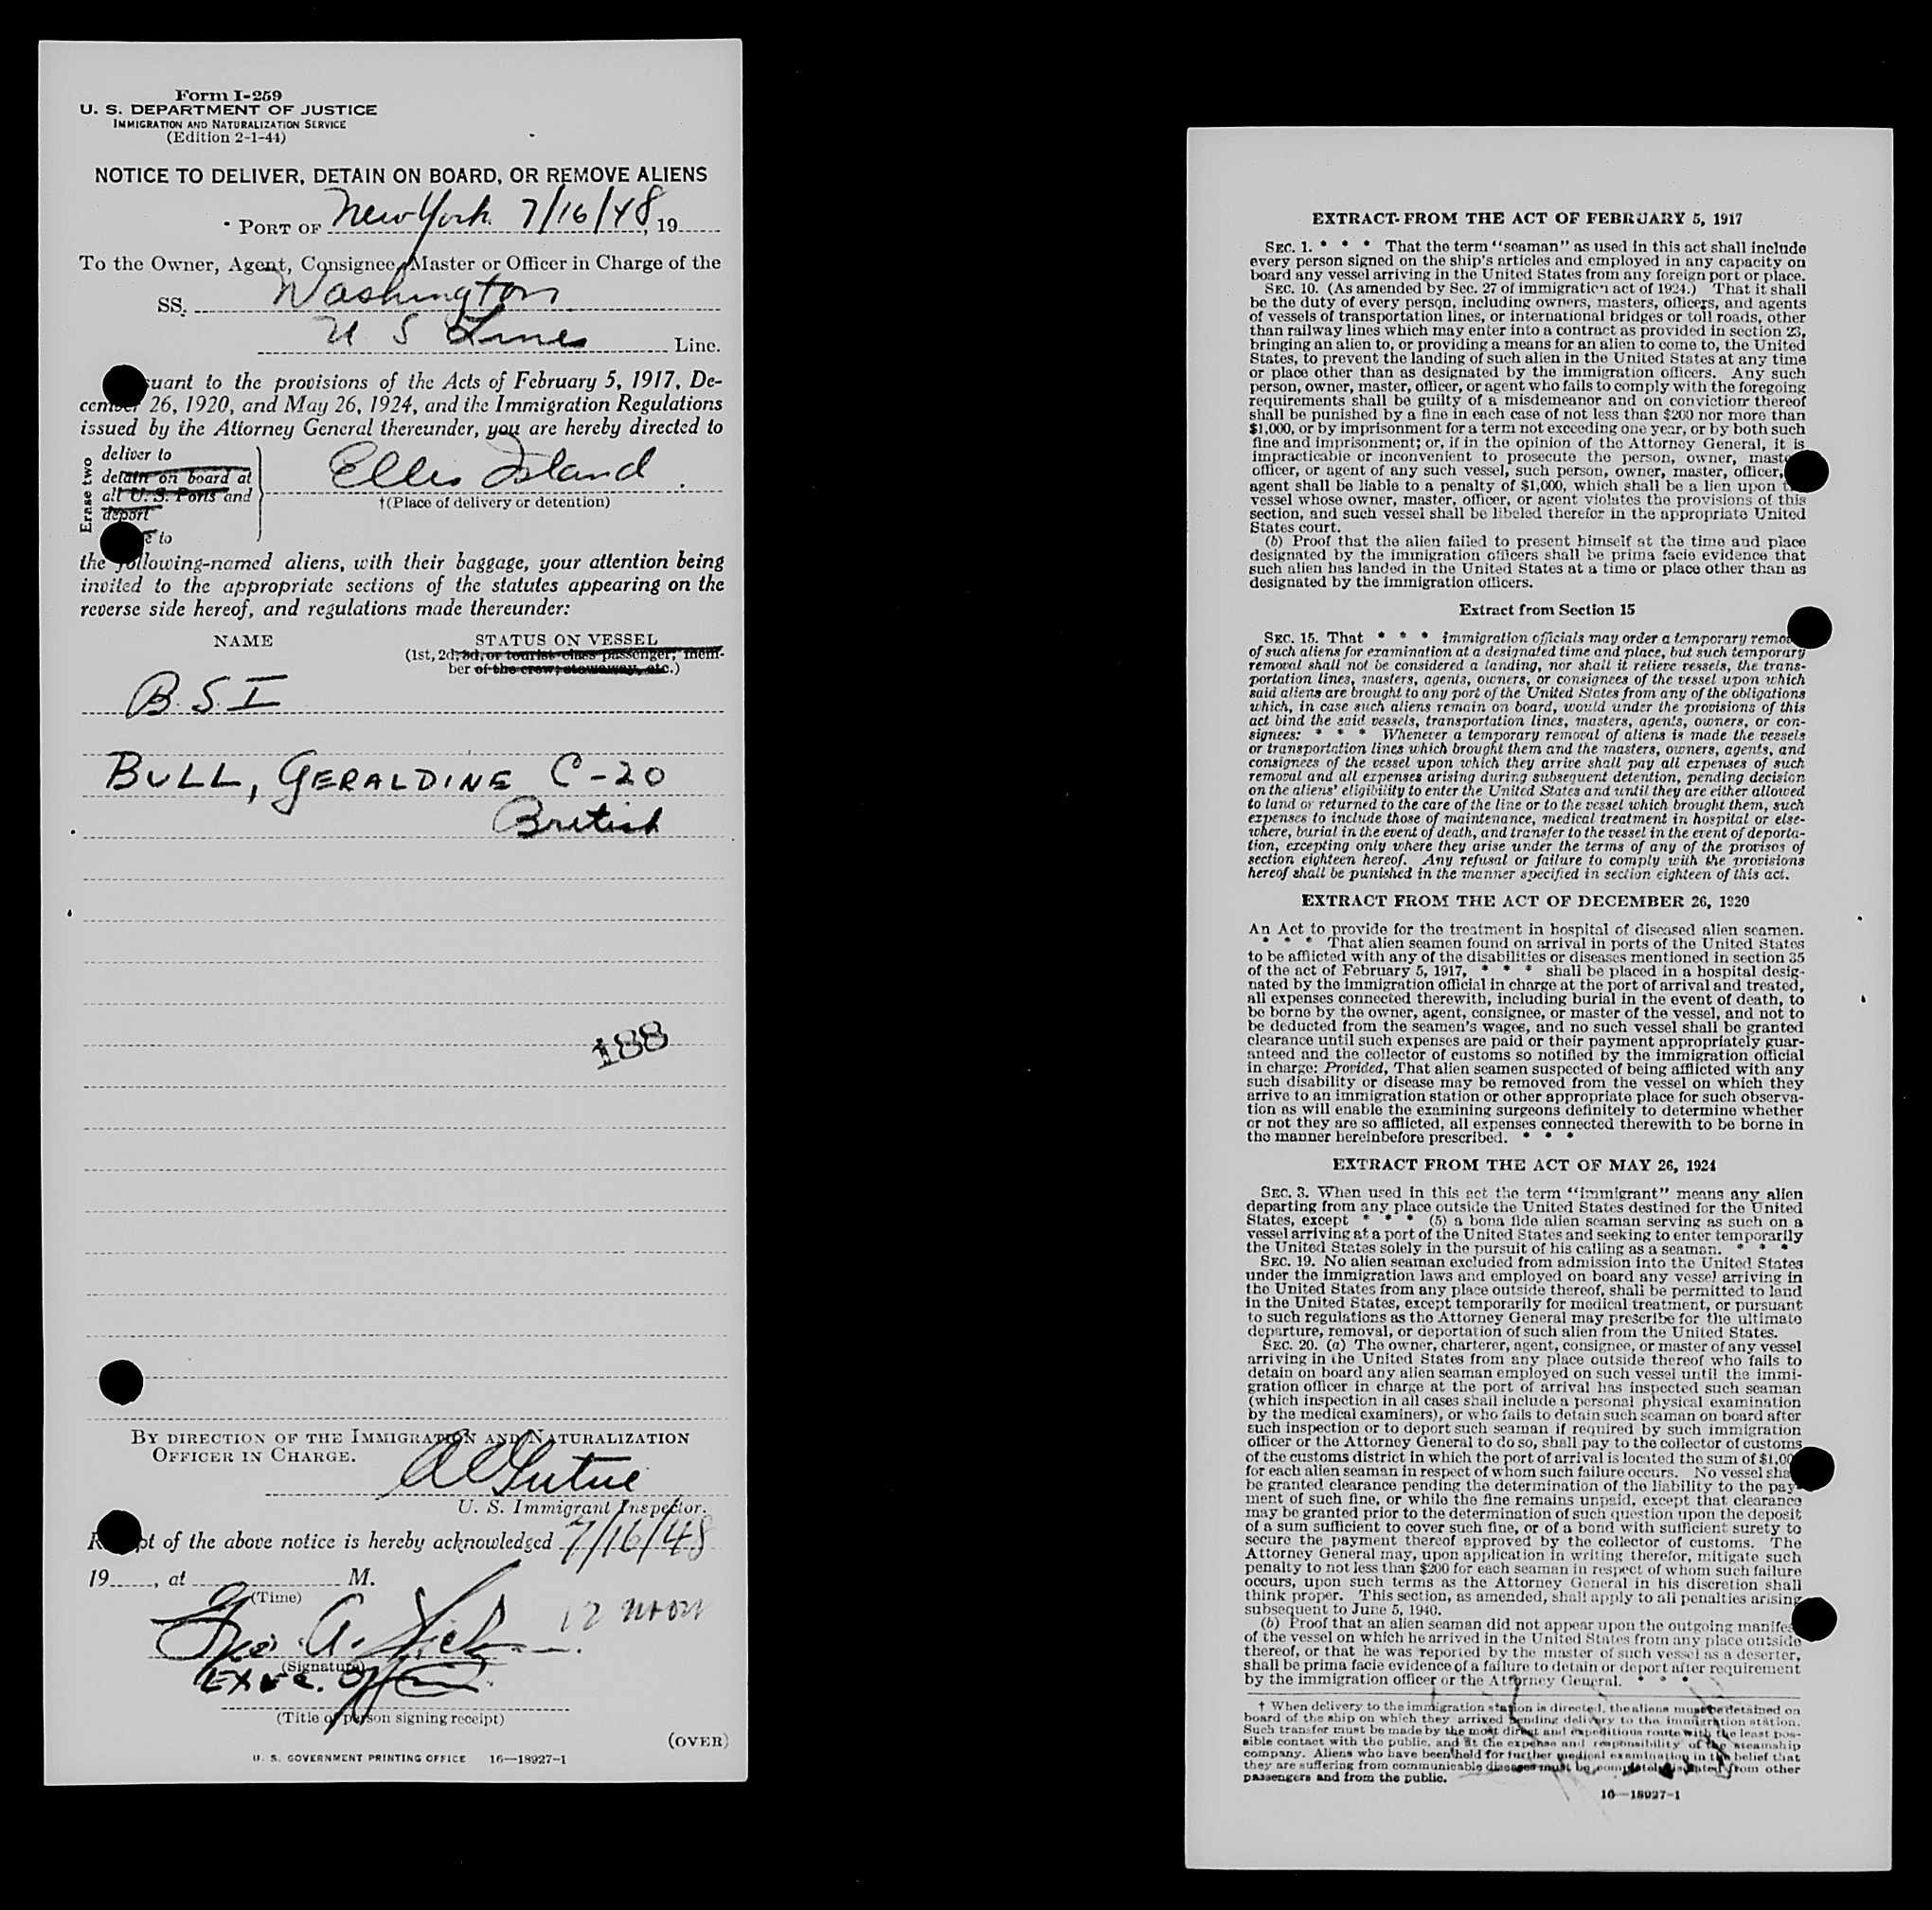 Form I-259
U. S. DEPARTMENT OF JUSTICE
IMMIGRATION AND NATURALIZATION SERVICE
(Edition 2-1-44)
NOTICE TO DELIVER, DETAIN ON BOARD, OR REMOVE ALIENS
PORT OF New York 7/16/48, 19
To the Owner, Agent, Consignee, Master or Officer in Charge of the
SS. Washington
U S Lines Line.
suant to the provisions of the Acts of February 5, 1917, De-
cember 26, 1920, and May 26, 1924, and the Immigration Regulations
issued by the Attorney General thereunder, you are hereby directed to
Erase two
deliver to
detain on board at
all U. S. Ports and
deport
to
Ellis Island
†(Place of delivery or detention)
the following-named aliens, with their baggage, your attention being
invited to the appropriate sections of the statutes appearing on the
reverse side hereof, and regulations made thereunder:
NAME STATUS ON VESSEL
(1st, 2d, 3d, or tourist class passenger, mem-
ber of the crew, stowaway, etc.)
B.S.I
BULL, GERALDINE C-20
British
188
BY DIRECTION OF THE IMMIGRATION AND NATURALIZATION
OFFICER IN CHARGE.
U. S. Immigrant Inspector.
pt of the above notice is hereby acknowledged 7/16/48
19, at M.
(Time)
12 noon
(Signature)
Exec. Officer
(Title of person signing receipt)
(OVER)
U. S. GOVERNMENT PRINTING OFFICE 16—18927-1
EXTRACT FROM THE ACT OF FEBRUARY 5, 1917
SEC. 1. * * * That the term "seaman" as used in this act shall include
every person signed on the ship's articles and employed in any capacity on
board any vessel arriving in the United States from any foreign port or place.
SEC. 10. (As amended by Sec. 27 of immigration act of 1924.) That it shall
be the duty of every person, including owners, masters, officers, and agents
of vessels of transportation lines, or international bridges or toll roads, other
than railway lines which may enter into a contract as provided in section 23,
bringing an alien to, or providing a means for an alien to come to, the United
States, to prevent the landing of such alien in the United States at any time
or place other than as designated by the immigration officers. Any such
person, owner, master, officer, or agent who fails to comply with the foregoing
requirements shall be guilty of a misdemeanor and on conviction thereof
shall be punished by a fine in each case of not less than $200 nor more than
$1,000, or by imprisonment for a term not exceeding one year, or by both such
fine and imprisonment; or, if in the opinion of the Attorney General, it is
impracticable or inconvenient to prosecute the person, owner, master,
officer, or agent of any such vessel, such person, owner, master, officer,
agent shall be liable to a penalty of $1,000, which shall be a lien upon the
vessel whose owner, master, officer, or agent violates the provisions of this
section, and such vessel shall be libeled therefor in the appropriate United
States court.
(b) Proof that the alien failed to present himself at the time and place
designated by the immigration officers shall be prima facie evidence that
such alien has landed in the United States at a time or place other than as
designated by the immigration officers.
Extract from Section 15
SEC. 15. That * * * immigration officials may order a temporary removal
of such aliens for examination at a designated time and place, but such temporary
removal shall not be considered a landing, nor shall it relieve vessels, the trans-
portation lines, masters, agents, owners, or consignees of the vessel upon which
said aliens are brought to any port of the United States from any of the obligations
which, in case such aliens remain on board, would under the provisions of this
act bind the said vessels, transportation lines, masters, agents, owners, or con-
signees: * * * Whenever a temporary removal of aliens is made the vessels
or transportation lines which brought them and the masters, owners, agents, and
consignees of the vessel upon which they arrive shall pay all expenses of such
removal and all expenses arising during subsequent detention, pending decision
on the aliens' eligibility to enter the United States and until they are either allowed
to land or returned to the care of the line or to the vessel which brought them, such
expenses to include those of maintenance, medical treatment in hospital or else-
where, burial in the event of death, and transfer to the vessel in the event of deporta-
tion, excepting only where they arise under the terms of any of the provisos of
section eighteen hereof. Any refusal or failure to comply with the provisions
hereof shall be punished in the manner specified in section eighteen of this act.
EXTRACT FROM THE ACT OF DECEMBER 26, 1920
An Act to provide for the treatment in hospital of diseased alien seamen.
* * * That alien seamen found on arrival in ports of the United States
to be afflicted with any of the disabilities or diseases mentioned in section 35
of the act of February 5, 1917, * * * shall be placed in a hospital desig-
nated by the immigration official in charge at the port of arrival and treated,
all expenses connected therewith, including burial in the event of death, to
be borne by the owner, agent, consignee, or master of the vessel, and not to
be deducted from the seamen's wages, and no such vessel shall be granted
clearance until such expenses are paid or their payment appropriately guar-
anteed and the collector of customs so notified by the immigration official
in charge: Provided, That alien seamen suspected of being afflicted with any
such disability or disease may be removed from the vessel on which they
arrive to an immigration station or other appropriate place for such observa-
tion as will enable the examining surgeons definitely to determine whether
or not they are so afflicted, all expenses connected therewith to be borne in
the manner hereinbefore prescribed. * * *
EXTRACT FROM THE ACT OF MAY 26, 1924
SEC. 3. When used in this act the term "immigrant" means any alien
departing from any place outside the United States destined for the United
States, except * * * (5) a bona fide alien seaman serving as such on a
vessel arriving at a port of the United States and seeking to enter temporarily
the United States solely in the pursuit of his calling as a seaman. * * *
SEC. 19. No alien seaman excluded from admission into the United States
under the immigration laws and employed on board any vessel arriving in
the United States from any place outside thereof, shall be permitted to land
in the United States, except temporarily for medical treatment, or pursuant
to such regulations as the Attorney General may prescribe for the ultimate
departure, removal, or deportation of such alien from the United States.
SEC. 20. (a) The owner, charterer, agent, consignee, or master of any vessel
arriving in the United States from any place outside thereof who fails to
detain on board any alien seaman employed on such vessel until the immi-
gration officer in charge at the port of arrival has inspected such seaman
(which inspection in all cases shall include a personal physical examination
by the medical examiners), or who fails to detain such seaman on board after
such inspection or to deport such seaman if required by such immigration
officer or the Attorney General to do so, shall pay to the collector of customs
of the customs district in which the port of arrival is located the sum of $1,000
for each alien seaman in respect of whom such failure occurs. No vessel shall
be granted clearance pending the determination of the liability to the pay-
ment of such fine, or while the fine remains unpaid, except that clearance
may be granted prior to the determination of such question upon the deposit
of a sum sufficient to cover such fine, or of a bond with sufficient surety to
secure the payment thereof approved by the collector of customs. The
Attorney General may, upon application in writing therefor, mitigate such
penalty to not less than $200 for each seaman in respect of whom such failure
occurs, upon such terms as the Attorney General in his discretion shall
think proper. This section, as amended, shall apply to all penalties arising
subsequent to June 5, 1940.
(b) Proof that an alien seaman did not appear upon the outgoing manifest
of the vessel on which he arrived in the United States from any place outside
thereof, or that he was reported by the master of such vessel as a deserter,
shall be prima facie evidence of a failure to detain or deport after requirement
by the immigration officer or the Attorney General. * * *
† When delivery to the immigration station is directed, the aliens must be detained on
board of the ship on which they arrived pending delivery to the immigration station.
Such transfer must be made by the most direct and expeditious route with the least pos-
sible contact with the public, and at the expense and responsibility of the steamship
company. Aliens who have been held for further medical examination in the belief that
they are suffering from communicable diseases must be completely isolated from other
passengers and from the public.
16—18927-1